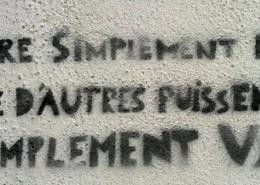 RE SIMPLEMENT
E D'AUTRES PUISSEN
MPLEMENT V